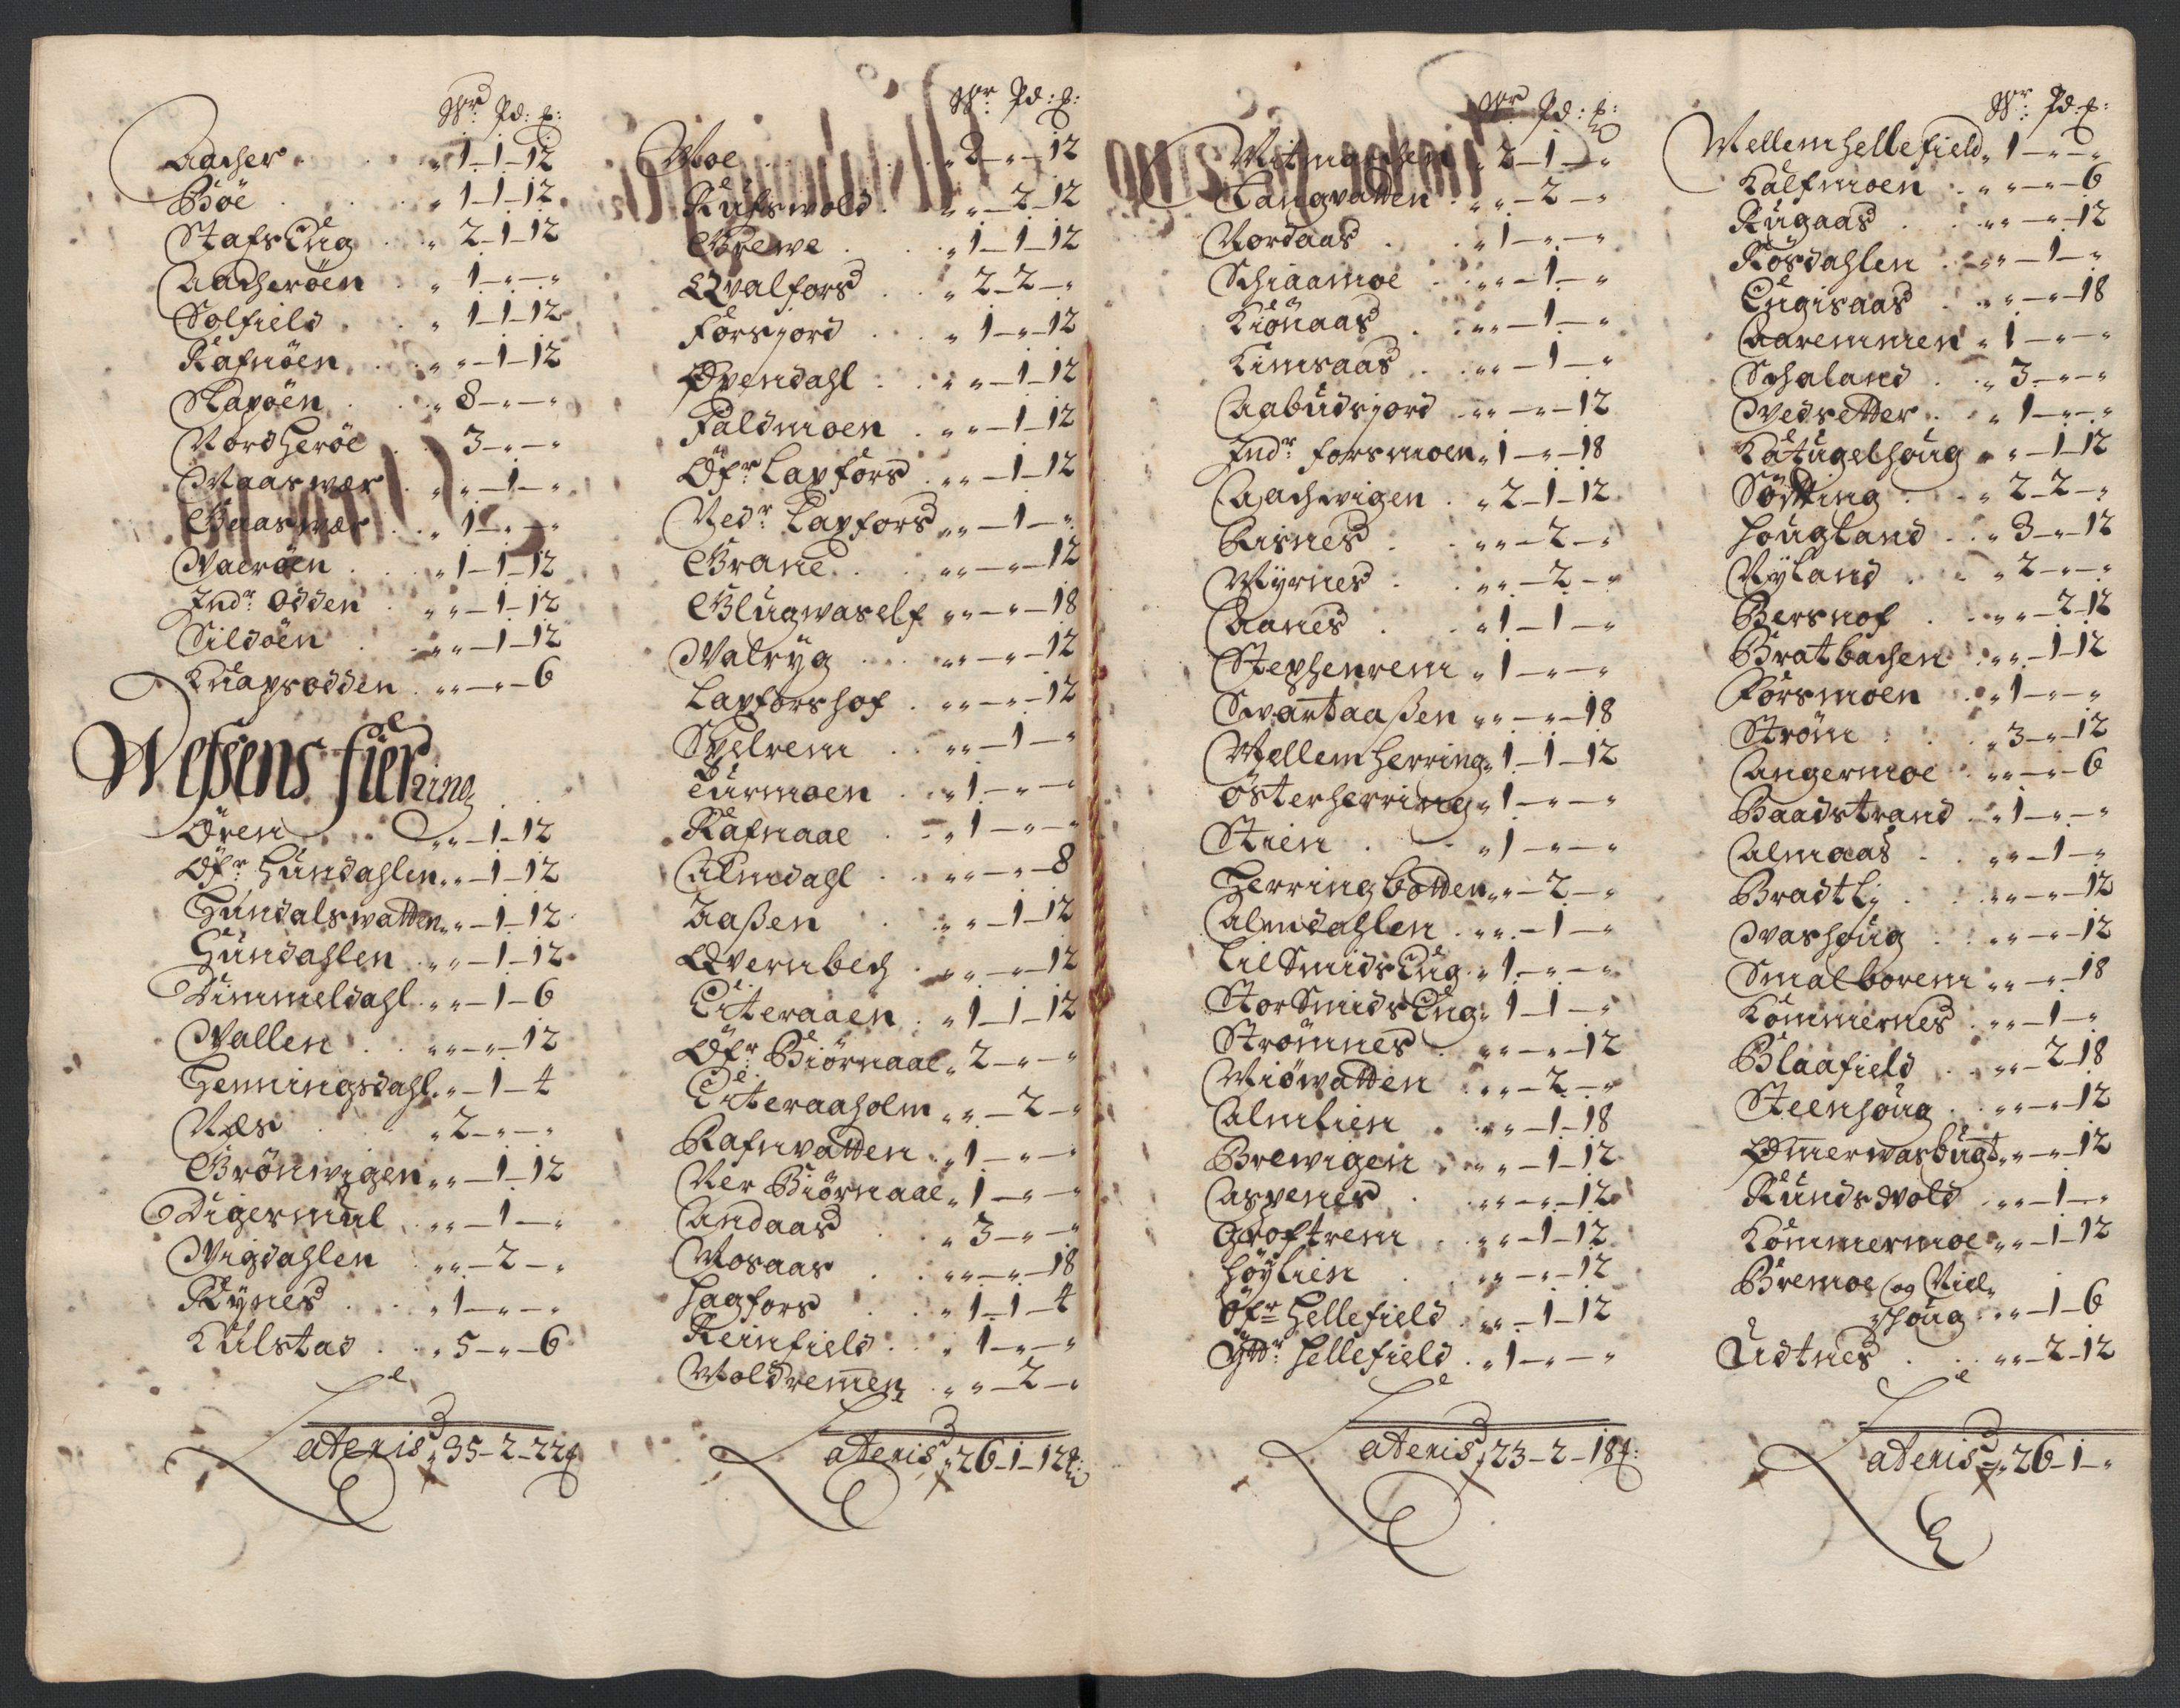 Wr Pd: ℔:
Aacher „ 1–1–12
Böe „ 1–1–12
Stafslug „ 2–1–12
Aacheröen „ 1–„–„
Solfield „ 1–1–12
Rafnöen „ „–1–12
Skapöen „ 8–„–„
Nordheröe 3–„–„
Maaswær „ „–1–„
Gaaswær „ 1–„–„
Waeröen „ 1–1–12
Indr Odden „ „–1–12
Sildöen „ „–1–12
Knapsodden „ „–„–6
Wefsens fierring
Ören „ „–1–12
Öfr Hundahlen „ „–1–12
Hundalswatten „ „–1–12
Hundahlen „ „–1–12
Dimmeldahl „ „–1–6
Wallen „ „–„–12
Hemmingsdahl „ „–1–4
Næs „ 2–„–„
Grönwigen „ „–1–12
Digermul „ „–1–„
Wigdahlen „ „–2–„
Rynes „ 1–„–„
Kulstad „ 5–„–6
Lateris „ 35–2–22℔
Wr Pd: ℔:
Moe „ 2–„–12
Rufswold „ „–2–12
Grewe „ 1–1–12
Qvalfors „ 2–2–„
Forsjord „ 1–„–12
Øvendahl „ „–1–12
Faldmoen „ „–1–12
Öfr Lapfors „ „–1–12
Nedr Lapfors „ „–1–„
Grane „ „–„–12
Glugwaself „ „–„–18
Malryg „ „–„–12
Lapforshof „ „–„–12
Svelrem „ „–1–„
Turmoen „ 1–„–„
Rafnaae „ 1–„–„
Almdahl „ „–„–8
Aaßen „ „–1–12
Qvernbech „ „–„–12
Literaaen „ 1–1–12
Öfr Biörnaae „ 2–„–„
Literaaholm „ „–2–„
Rafnvatten „ 1–„–„
Ner Biörnaae „ 1–„–„
Andaas „ 3–„–„
Mosaas „ „–„–18
Hagfors „ 1–1–4
Reinfield „ 1–„–„
Moldremen „ „–2–„
Lateris „ 26–1–12℔:
Wr Pd: ℔:
Mitmarchen „ 2–1–„
Langvatten „ „–2–„
Nordaas „ 1–„–„
Schiaamoe „ „–1–„
Kiönaas „ „–1–„
Kimsaas „ „–1–„
Aabudsjord „ „–„–12
Indr Forsmoen „ 1–„–18
Aachwigen „ 2–1–12
Risnes „ „–2–„
Myrnes „ „–2–„
Aanes „ 1–1–„
Stephenrem „ 1–„–„
Svartaaßen „ „–„–18
Mellem Herring „ 1–1–12
Österherring „ 1–„–„
Stien „ 1–„–„
Herringbotten „ „–2–„
Almdahlen „ „–1–„
Lil Smidslug „ 1–„–„
Stor Smidslug „ 1–1–„
Strömnes „ „–„–12
Miöwatten „ „–2–„
Almlien „ „–1–18
Brewigen „ „–1–12
Aspenes „ „–„–12
Groftrem „ „–1–12
Höÿlien „ „–„–12
Öfr Hellefield „ „–1–12
Ÿttr Hellefield „ 1–„–„
Lateris „ 23–2–18℔:
Wr Pd: ℔:
Mellem Hellefield „ 1–„–„
Kalfmoen „ „–„–6
Rugaas „ „–„–12
Rösdahlen „ „–1–„
Lugisaas „ „–„–18
Aaremmen „ 1–„–„
Schaland „ 3–„–„
Wedsetter „ 1–„–„
Katugelhoug „ „–1–12
Söfting „ 2–2–„
Hougland „ 3–„–12
Nÿland „ 2–„–„
Bersnof „ „–2–12
Bratbachen „ „–1–12
Forsmoen „ 1–„–„
Ström „ 3–„–12
Angermoe „ „–„–6
Baadstrand „ 1–„–„
Almaas „ „–1–„
Bradtlj „ „–„–12
Washoug „ „–„–12
Smalborem „ „–„–18
Kommernes „ „–1–„
Blaafield „ „–2–18
Steenhoug „ „–„–12
Ømerwasbugt „ „–„–12
Runds Wold „ „–1–„
Kommermoe „ „–1–12
Bremoe og Niel„
schoug „ „–1–6
Udtnes „ „–2–12
Lateris „ 26–1–„